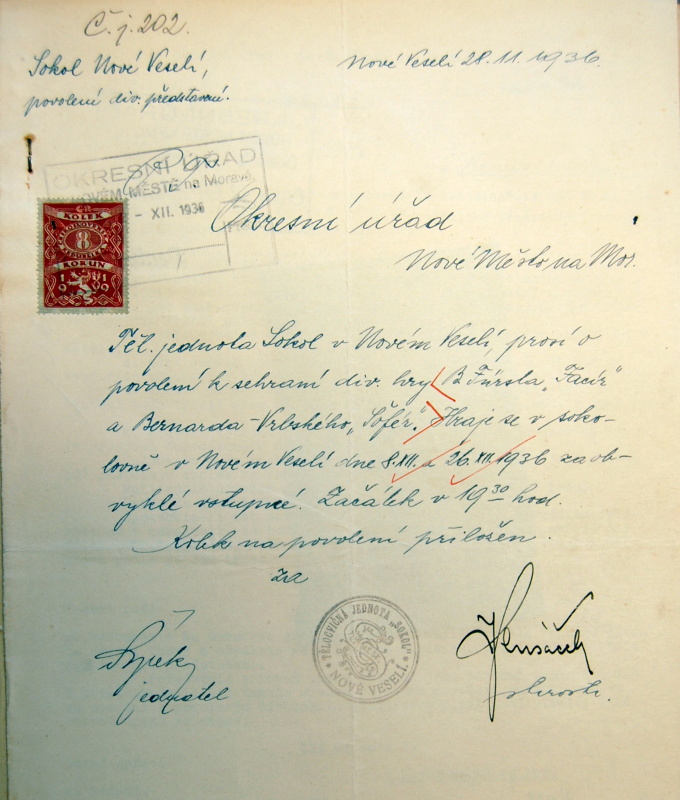 Č. j. 202.
Sokol Nové Veselí,
povolení div. představení.
Nové Veselí 28. 11. 1936.
OKRESNÍ ÚŘAD
NOVÉM MĚSTĚ na Moravě
- XII. 1936
KOLEK
8
KORUN
1919
Okresní úřad
Nové Město na Mor.
Těl. jednota Sokol v Novém Veselí, prosí o
povolení k sehraní div. hry B. Fürsta „Facír"
a Bernarda-Vrbského „Šófér". Hraje se v soko-
lovně v Novém Veselí dne 8.XII. a 26.XII.1936 za ob-
vyklé vstupné. Začátek v 19 30 hod.
Kolek na povolení přiložen.
Za
jednatel
TĚLOCVIČNÁ JEDNOTA „SOKOL"
NOVÉ VESELÍ.
starosta.